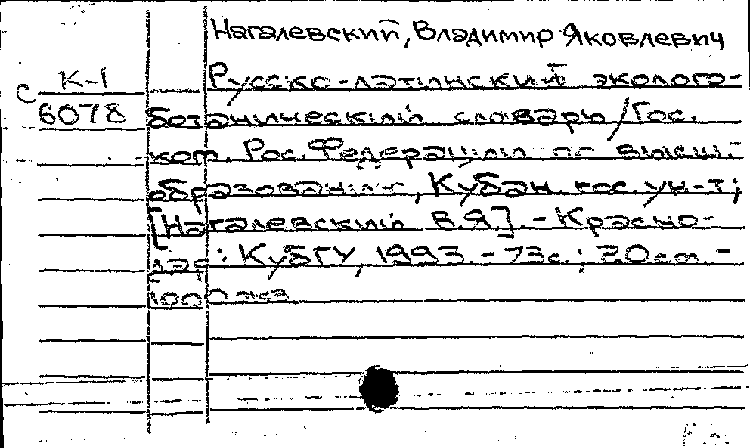 Нагалевский, Владимир Яковлевич
К-1
Русско-латинский эколого-
С
6078
ботанический словарь / Гос.
ком. Рос. Федерации по высш.
образованию, Кубан. гос. ун-т;
[Нагалевский В.Я.]. - Красно-
дар: КубГУ, 1993. - 73с.; 20см. -
1000 экз.